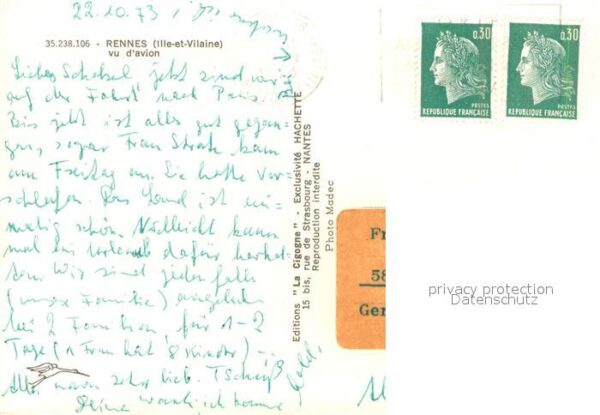 22.10.73
35.238.106 - RENNES (Ille-et-Vilaine)
vu d'avion
jetzt sind wir
auf der Fahrt nach Paris
Bis jetzt ist alles gut gegan-
gen, sogar Frau kam
am Freitag an. Sie hatte ver-
schlafen. Das Land ist ein-
malig schön. Vielleicht kann
mal ein Urlaub dafür herhal-
ten. Wir sind jeden falls
Familie)
bei 2 Familien für 1-2
Tage (1 Frau hat 8 Kinder)
Alle waren sehr lieb. Tschüß
Deine
bald!
Editions "La Cigogne" - Exclusivité HACHETTE
15 bis, rue de Strasbourg - NANTES
Reproduction interdite
Photo Madec
0,30
POSTES
REPUBLIQUE FRANÇAISE
0,30
POSTES
REPUBLIQUE FRANÇAISE
Fr
58
Ger
privacy protection
Datenschutz